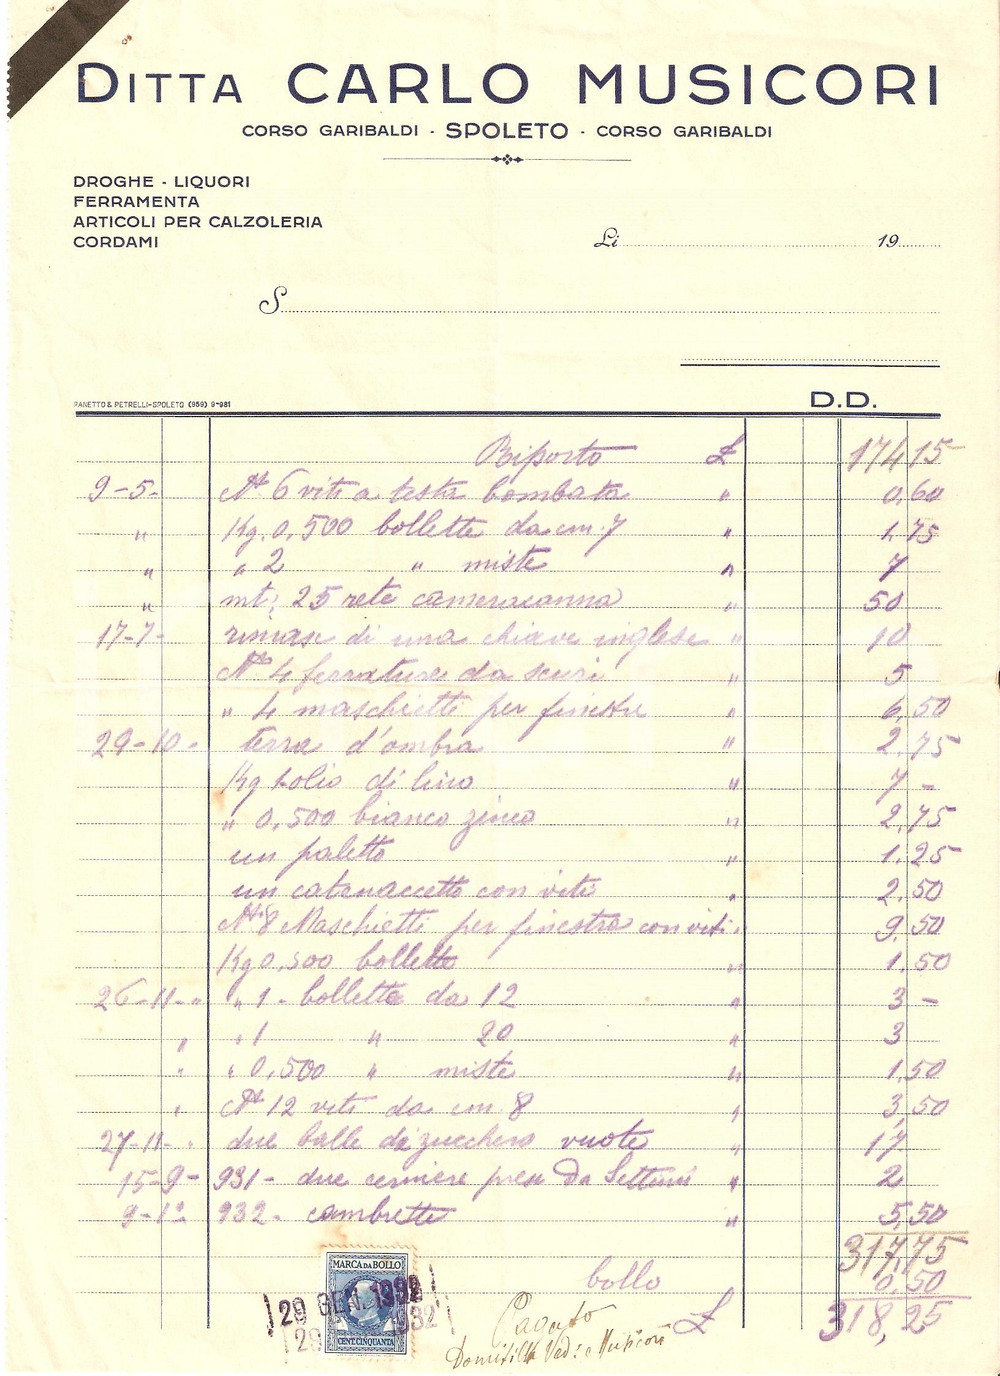 DITTA CARLO MUSICORI
CORSO GARIBALDI - SPOLETO - CORSO GARIBALDI
DROGHE - LIQUORI
FERRAMENTA
ARTICOLI PER CALZOLERIA
CORDAMI
Li 19
S
PANETTO & PETRELLI-SPOLETO (959) 9-931
D.D.
Riporto £ 174,15
9-5- N° 6 viti a testa bombata " 0,60
" Kg. 0,500 bollette da cm. 7 " 1,75
" " 2 " miste " 7
" mt: 25 rete cameracanna " 50
17-7- rimase di una chiave inglese " 10
N° 4 ferrature da scuri " 5
" 4 maschietti per finestre " 6,50
29-10- terra d'ombra " 2,75
Kg 1 olio di lino " 7 -
" 0,500 bianco zinco " 2,75
un paletto " 1,25
un catenaccetto con viti " 2,50
N° 8 Maschietti per finestra con viti " 9,50
Kg 0,500 bollette " 1,50
26-11- " " 1 - bollette da 12 " 3 -
" " 1 " 20 " 3
" " 0,500 " miste " 1,50
" N° 12 viti da cm 8 " 3,50
27-11- " due balle di zucchero vuote " 17
15-9- 931- due cerniere prese Da Settimi " 2
9-1° 932- cambrette " 5,50
317,75
bollo 0,50
£ 318,25
MARCA DA BOLLO
29 GEN. 1932
CENT. CINQUANTA
Pagato
Domitilla Ved: Musicori